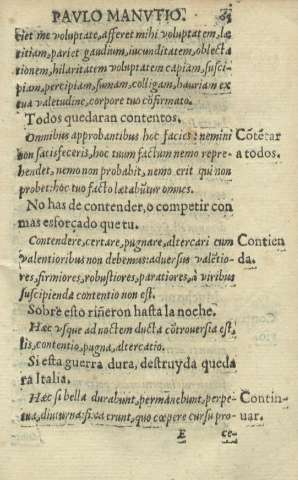 PAVLO MANVTIO.
ciet me voluptate, afferet mihi voluptatem, læ
titiam, pariet gaudium, iucunditatem, oblecta
tionem, hilaritatem voluptatem capiam, susci-
piam, percipiam, sumam, colligam, hauriam ex
tua valetudine, corpore tuo cõfirmato.
Todos quedaran contentos.
Omnibus approbantibus hoc facies: nemini
non satisfeceris, hoc tuum factum nemo repre-
hendet, nemo non probabit, nemo erit qui non
probet: hoc tuo facto lætabũtur omnes.
Cõtẽtar
a todos.
No has de contender, o competir con
mas esforçado que tu.
Contendere, certare, pugnare, altercari cum
valentioribus non debemus: aduersus valẽtio-
res, firmiores, robustiores, paratiores, à viribus
suscipienda contentio non est.
Contien
da.
Sobre esto riñeron hasta la noche.
Hæc vsque ad noctem ducta cõtrouersia est,
lis, contentio, pugna, altercatio.
Si esta guerra dura, destruyda queda
ra Italia.
Hæc si bella durabunt, permanebunt, perpe-
tua, diuturna si va erunt, quo cœpere cursu pro-
Contin-
uar.
E ce-